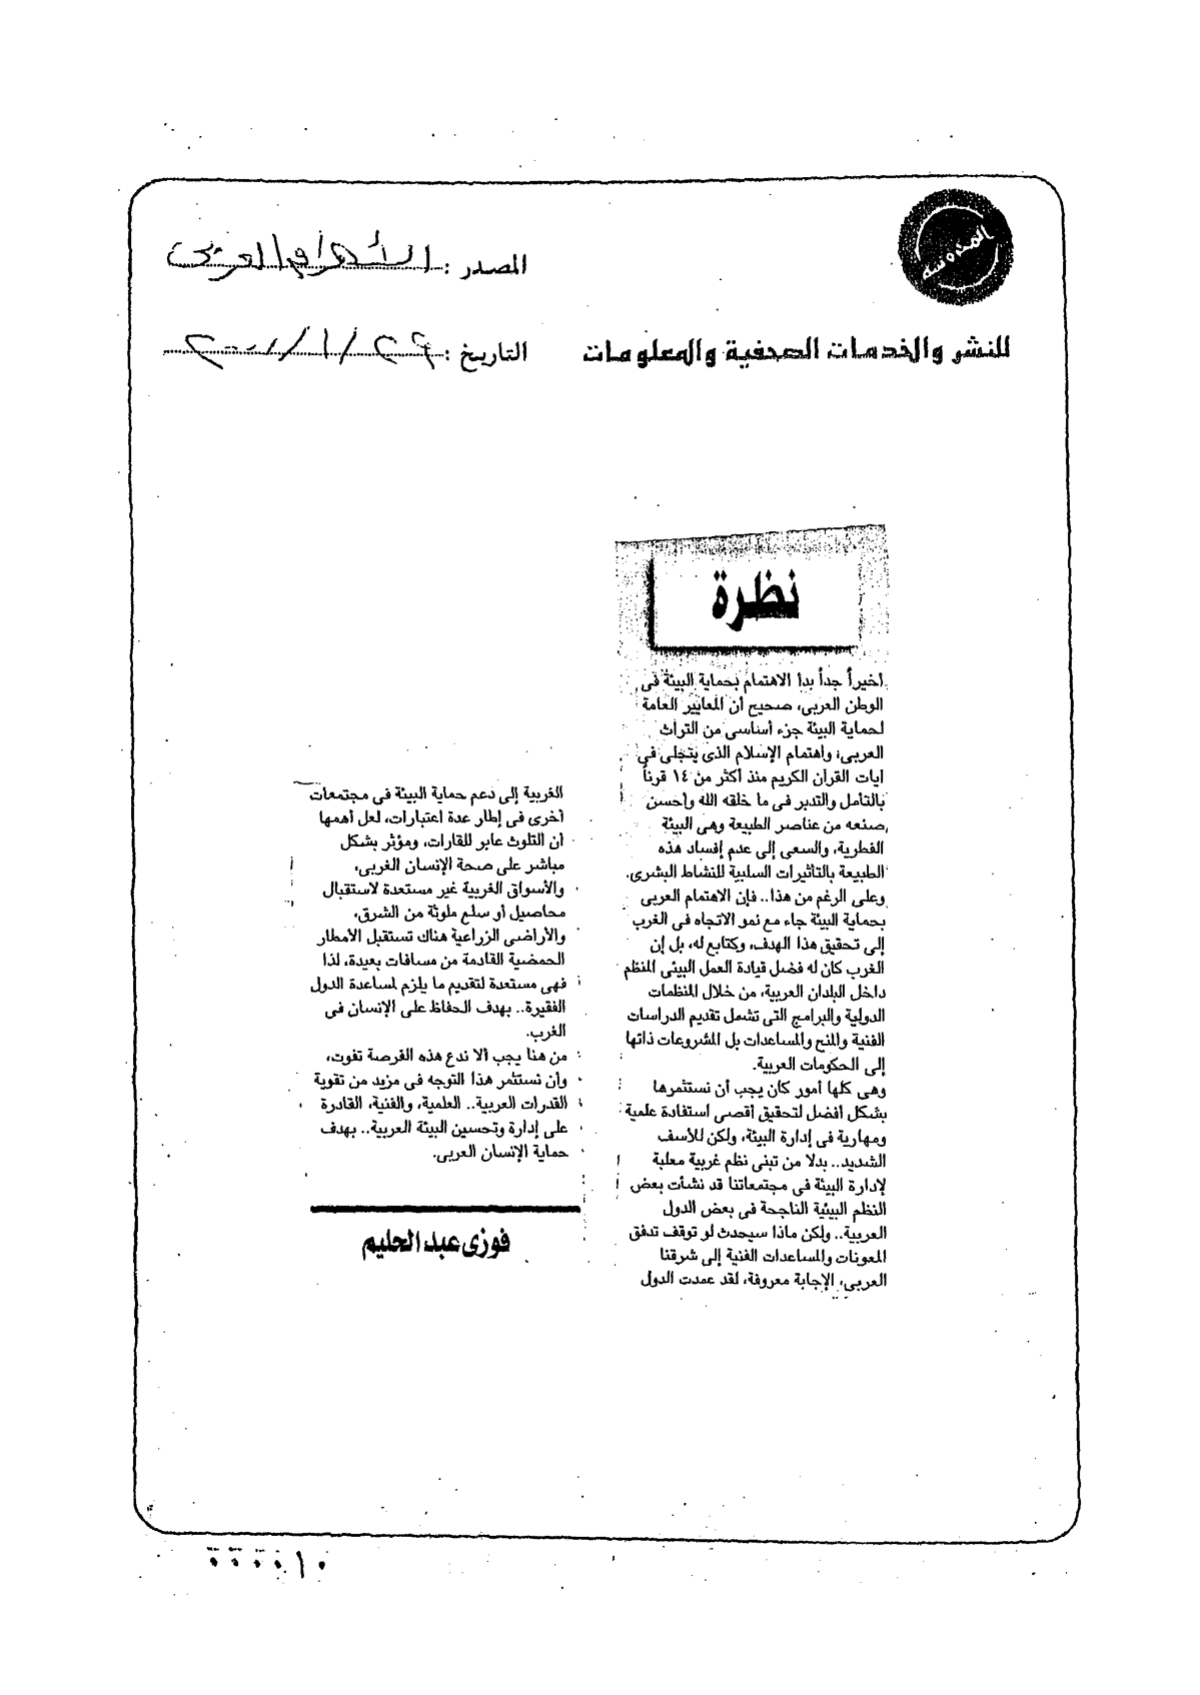 المحروسة
المصدر : الأهرام العربى
للنشر والخدمات الصحفية والمعلومات
التاريخ : ٢٠٠١/١/٢٩
نظرة
أخيراً جداً بدأ الاهتمام بحماية البيئة فى
الوطن العربى، صحيح أن المعايير العامة
لحماية البيئة جزء أساسى من التراث
العربى، واهتمام الإسلام الذى يتجلى فى
آيات القرآن الكريم منذ أكثر من ١٤ قرناً
بالتأمل والتدبر فى ما خلقه الله وأحسن
صنعه من عناصر الطبيعة وهى البيئة
الفطرية، والسعى إلى عدم إفساد هذه
الطبيعة بالتأثيرات السلبية للنشاط البشرى.
وعلى الرغم من هذا.. فإن الاهتمام العربى
بحماية البيئة جاء مع نمو الاتجاه فى الغرب
إلى تحقيق هذا الهدف، وكتابع له، بل إن
الغرب كان له فضل قيادة العمل البيئى المنظم
داخل البلدان العربية، من خلال المنظمات
الدولية والبرامج التى تشمل تقديم الدراسات
الفنية والمنح والمساعدات بل المشروعات ذاتها
إلى الحكومات العربية.
وهى كلها أمور كان يجب أن نستثمرها
بشكل أفضل لتحقيق أقصى استفادة علمية
ومهارية فى إدارة البيئة، ولكن للأسف
الشديد.. بدلا من تبنى نظم غربية معلبة
لإدارة البيئة فى مجتمعاتنا قد نشأت بعض
النظم البيئية الناجحة فى بعض الدول
العربية.. ولكن ماذا سيحدث لو توقف تدفق
المعونات والمساعدات الفنية إلى شرقنا
العربى، الإجابة معروفة، لقد عمدت الدول
الغربية إلى دعم حماية البيئة فى مجتمعات
أخرى فى إطار عدة اعتبارات، لعل أهمها
أن التلوث عابر للقارات، ومؤثر بشكل
مباشر على صحة الإنسان الغربى،
والأسواق الغربية غير مستعدة لاستقبال
محاصيل أو سلع ملوثة من الشرق،
والأراضى الزراعية هناك تستقبل الأمطار
الحمضية القادمة من مسافات بعيدة، لذا
فهى مستعدة لتقديم ما يلزم لمساعدة الدول
الفقيرة.. بهدف الحفاظ على الإنسان فى
الغرب.
من هنا يجب ألا ندع هذه الفرصة تفوت،
وأن نستثمر هذا التوجه فى مزيد من تقوية
القدرات العربية.. العلمية، والفنية، القادرة
على إدارة وتحسين البيئة العربية.. بهدف
حماية الإنسان العربى.
فوزى عبد الحليم